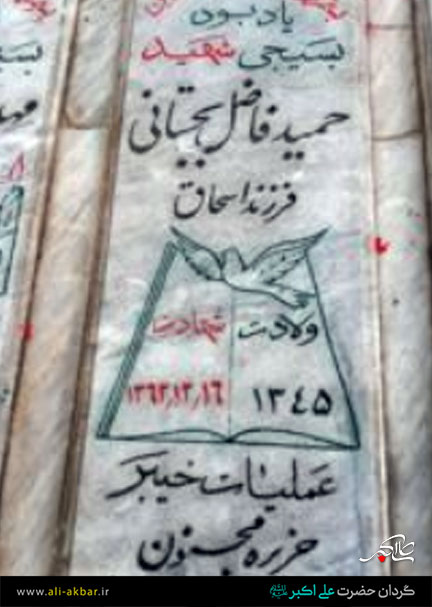 یادبود
بسیجی شهید
حمید فاضل بجستانی
فرزند اسحاق
ولادت شهادت
۱۳۴۵ ۱۳۶۲,۱۲,۱۶
عملیات خیبر
جزیره مجنون
علی اکبر
www.ali-akbar.ir
گردان حضرت علی اکبر